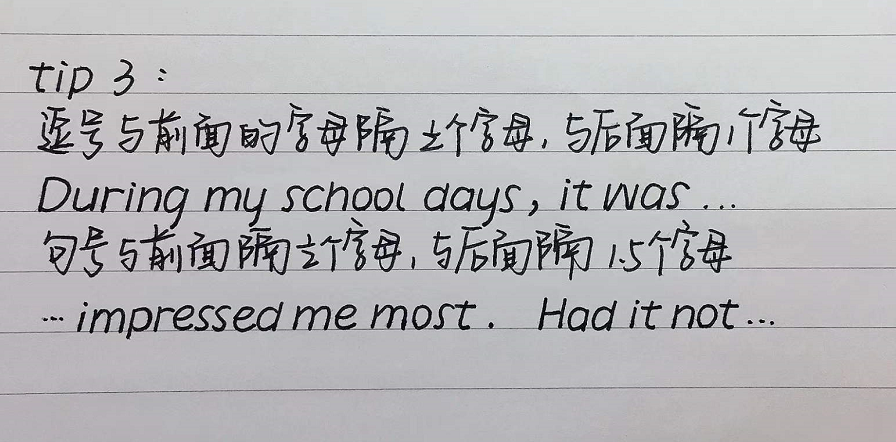 tip 3：
逗号与前面的字母隔½个字母，与后面隔1个字母
During my school days, it was ...
句号与前面隔½个字母，与后面隔1.5个字母
... impressed me most. Had it not ...